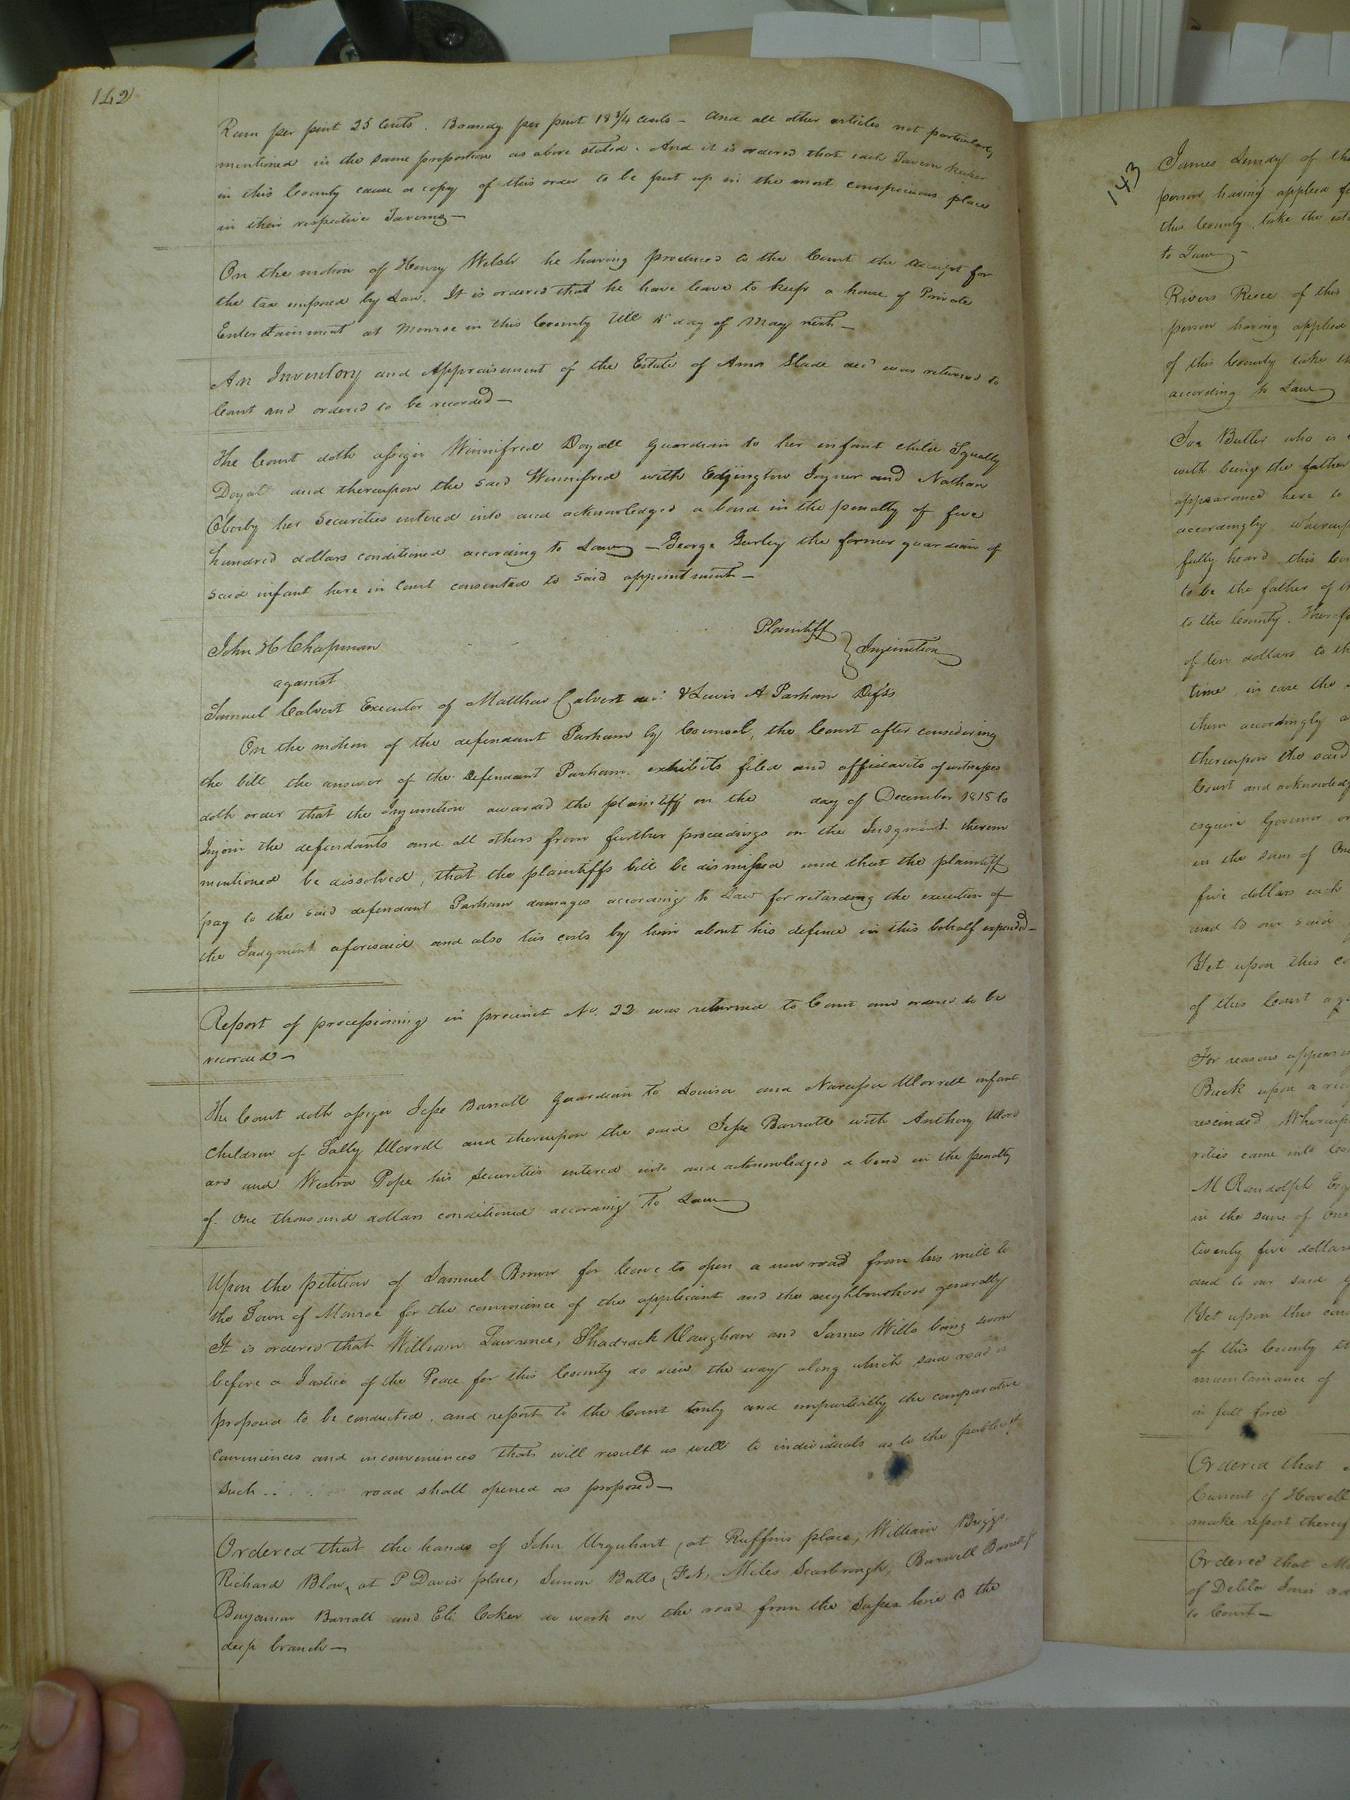 142
Rum per pint 25 Cents. Brandy per pint 18 3/4 cents - And all other articles not particularly
mentioned in the same proportion as above stated. And it is ordered that each Tavern keeper
in this County cause a copy of this order to be put up in the most conspicuous place
in their respective Taverns—
On the motion of Henry Welsh he having produced to the Court the receipt for
the tax imposed by Law. It is ordered that he have leave to keep a house of Private
Entertainment at Monroe in this County till 1st day of May next—
An Inventory and Appraisement of the Estate of Amos Slade decd was returned to
Court and ordered to be recorded—
The Court doth assign Winnifred Doyall Guardian to her infant child Squally
Doyal and thereupon the said Winnifred with Edgington Joyner and Nathan
her Securities entered into and acknowledged a bond in the penalty of five
hundred dollars conditioned according to Law — George Gurley the former guardian of
said infant here in Court consented to said appointment—
John H Chapman Plaintiff
against } Injunction
Samuel Calvert Executor of Matthew Calvert decd. & Lewis A Parham Defts
On the motion of the defendant Parham by Counsel, the Court after considering
the bill the answer of the Defendant Parham. exhibits filed and affidavits of witnesses
doth order that the Injunction awarded the plaintiff on the day of December 1815 to
Injoin the defendants and all others from further proceedings on the Judgment therein
mentioned be dissolved, that the plaintiffs bill be dismissed and that the plaintiff
pay to the said defendant Parham damages according to Law for retarding the execution of
the Judgment aforesaid and also his costs by him about his defence in this behalf expended—
Report of processioning in precinct No. 22 was returned to Court and ordered to be
recorded—
The Court doth assign Jesse Barratt Guardian to Louisa and Narcissa Worrell infant
children of Sally Worrell and thereupon the said Jesse Barratt with Anthony Wood
ard and Weston Pope his Securities entered into and acknowledged a bond in the penalty
of One thousand dollars conditioned according to Law—
Upon the petition of Samuel Brown for leave to open a new road from his mill to
the Town of Monroe for the convenience of the applicant and the neighbourhood generally
It is ordered that William Lawrence, Shadrack Vaughan and James Wills being sworn
before a Justice of the Peace for this County do view the way along which said road is
proposed to be conducted. and report to the Court truly and impartially the comparative
conveniences and inconveniences that will result as well to individuals as to the public if
such road shall opened as proposed—
Ordered that the hands of John Urquhart, at Ruffins place, William Briggs
Richard Blow, at P Davis' place, Simon Batts, Miles Scarbrough, Barwell Barratt
Benjamin Barratt and Eli Coker do work on the road from the Sussex line to the
deep branch—
143
James Lundy of th
person having applied f
this County take the
to Law—
Rivers Reese of this
person having applied
of this County take th
according to Law—
Joe Butler who is
with being the father
appearance here to
accordingly whereup
fully heard this Co
to be the father of
to the County. Therefo
of ten dollars to th
time in case the
them accordingly a
thereupon the said
Court and acknowledg
esquire Governor
in the sum of One
five dollars each
and to our said
Yet upon this co
of this Court ag
For reasons appearin
Buck upon a
rescinded. Whereup
rities came into Co
M Randolph Esq
in the sum of One
twenty five dollars
and to our said g
Yet upon this con
of this County
maintainance of
in full force
Ordered that
Current of Howell
make report thereof
Ordered that
of Delila
to Court—